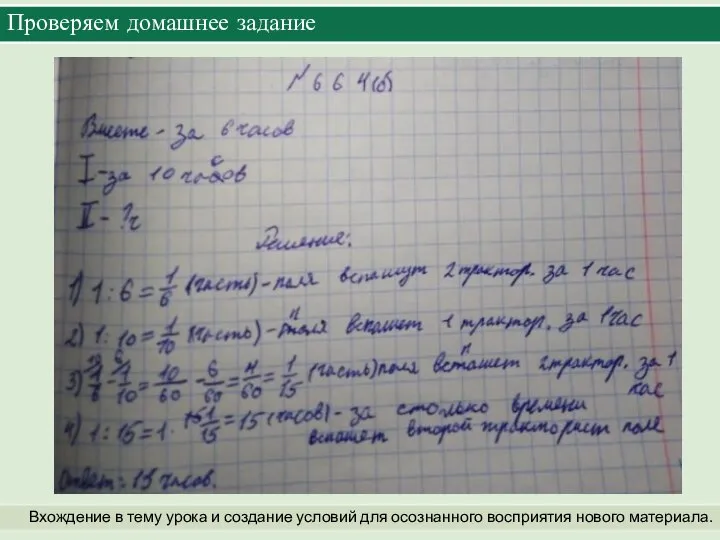 Проверяем домашнее задание
№ 664(б)
Вместе - за 6 часов
I - за 10 часов
II - ? ч
Решение:
1) 1 : 6 = 1/6 (часть) - поля вспашут 2 трактор. за 1 час
2) 1 : 10 = 1/10 (часть) - поля вспашет 1 трактор. за 1 час
3) 1/6 - 1/10 = 10/60 - 6/60 = 4/60 = 1/15 (часть) поля вспашет 2 трактор. за 1
час
4) 1 : 15 = 1 · 15/1 = 15 (часов) - за столько времени
вспашет второй тракторист поле
Ответ: 15 часов.
Вхождение в тему урока и создание условий для осознанного восприятия нового материала.